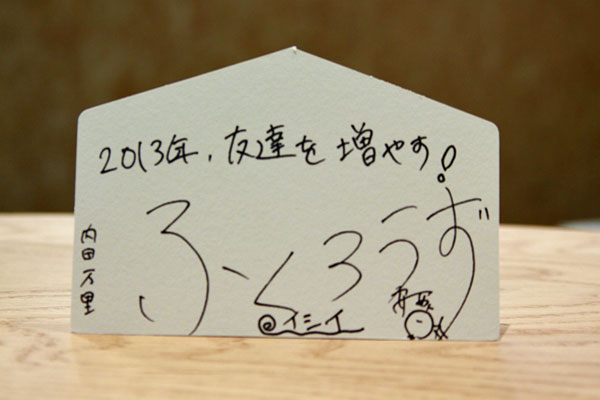 2013年、友達を増やす!
ふくろうず
内田万里
イシイ
安西